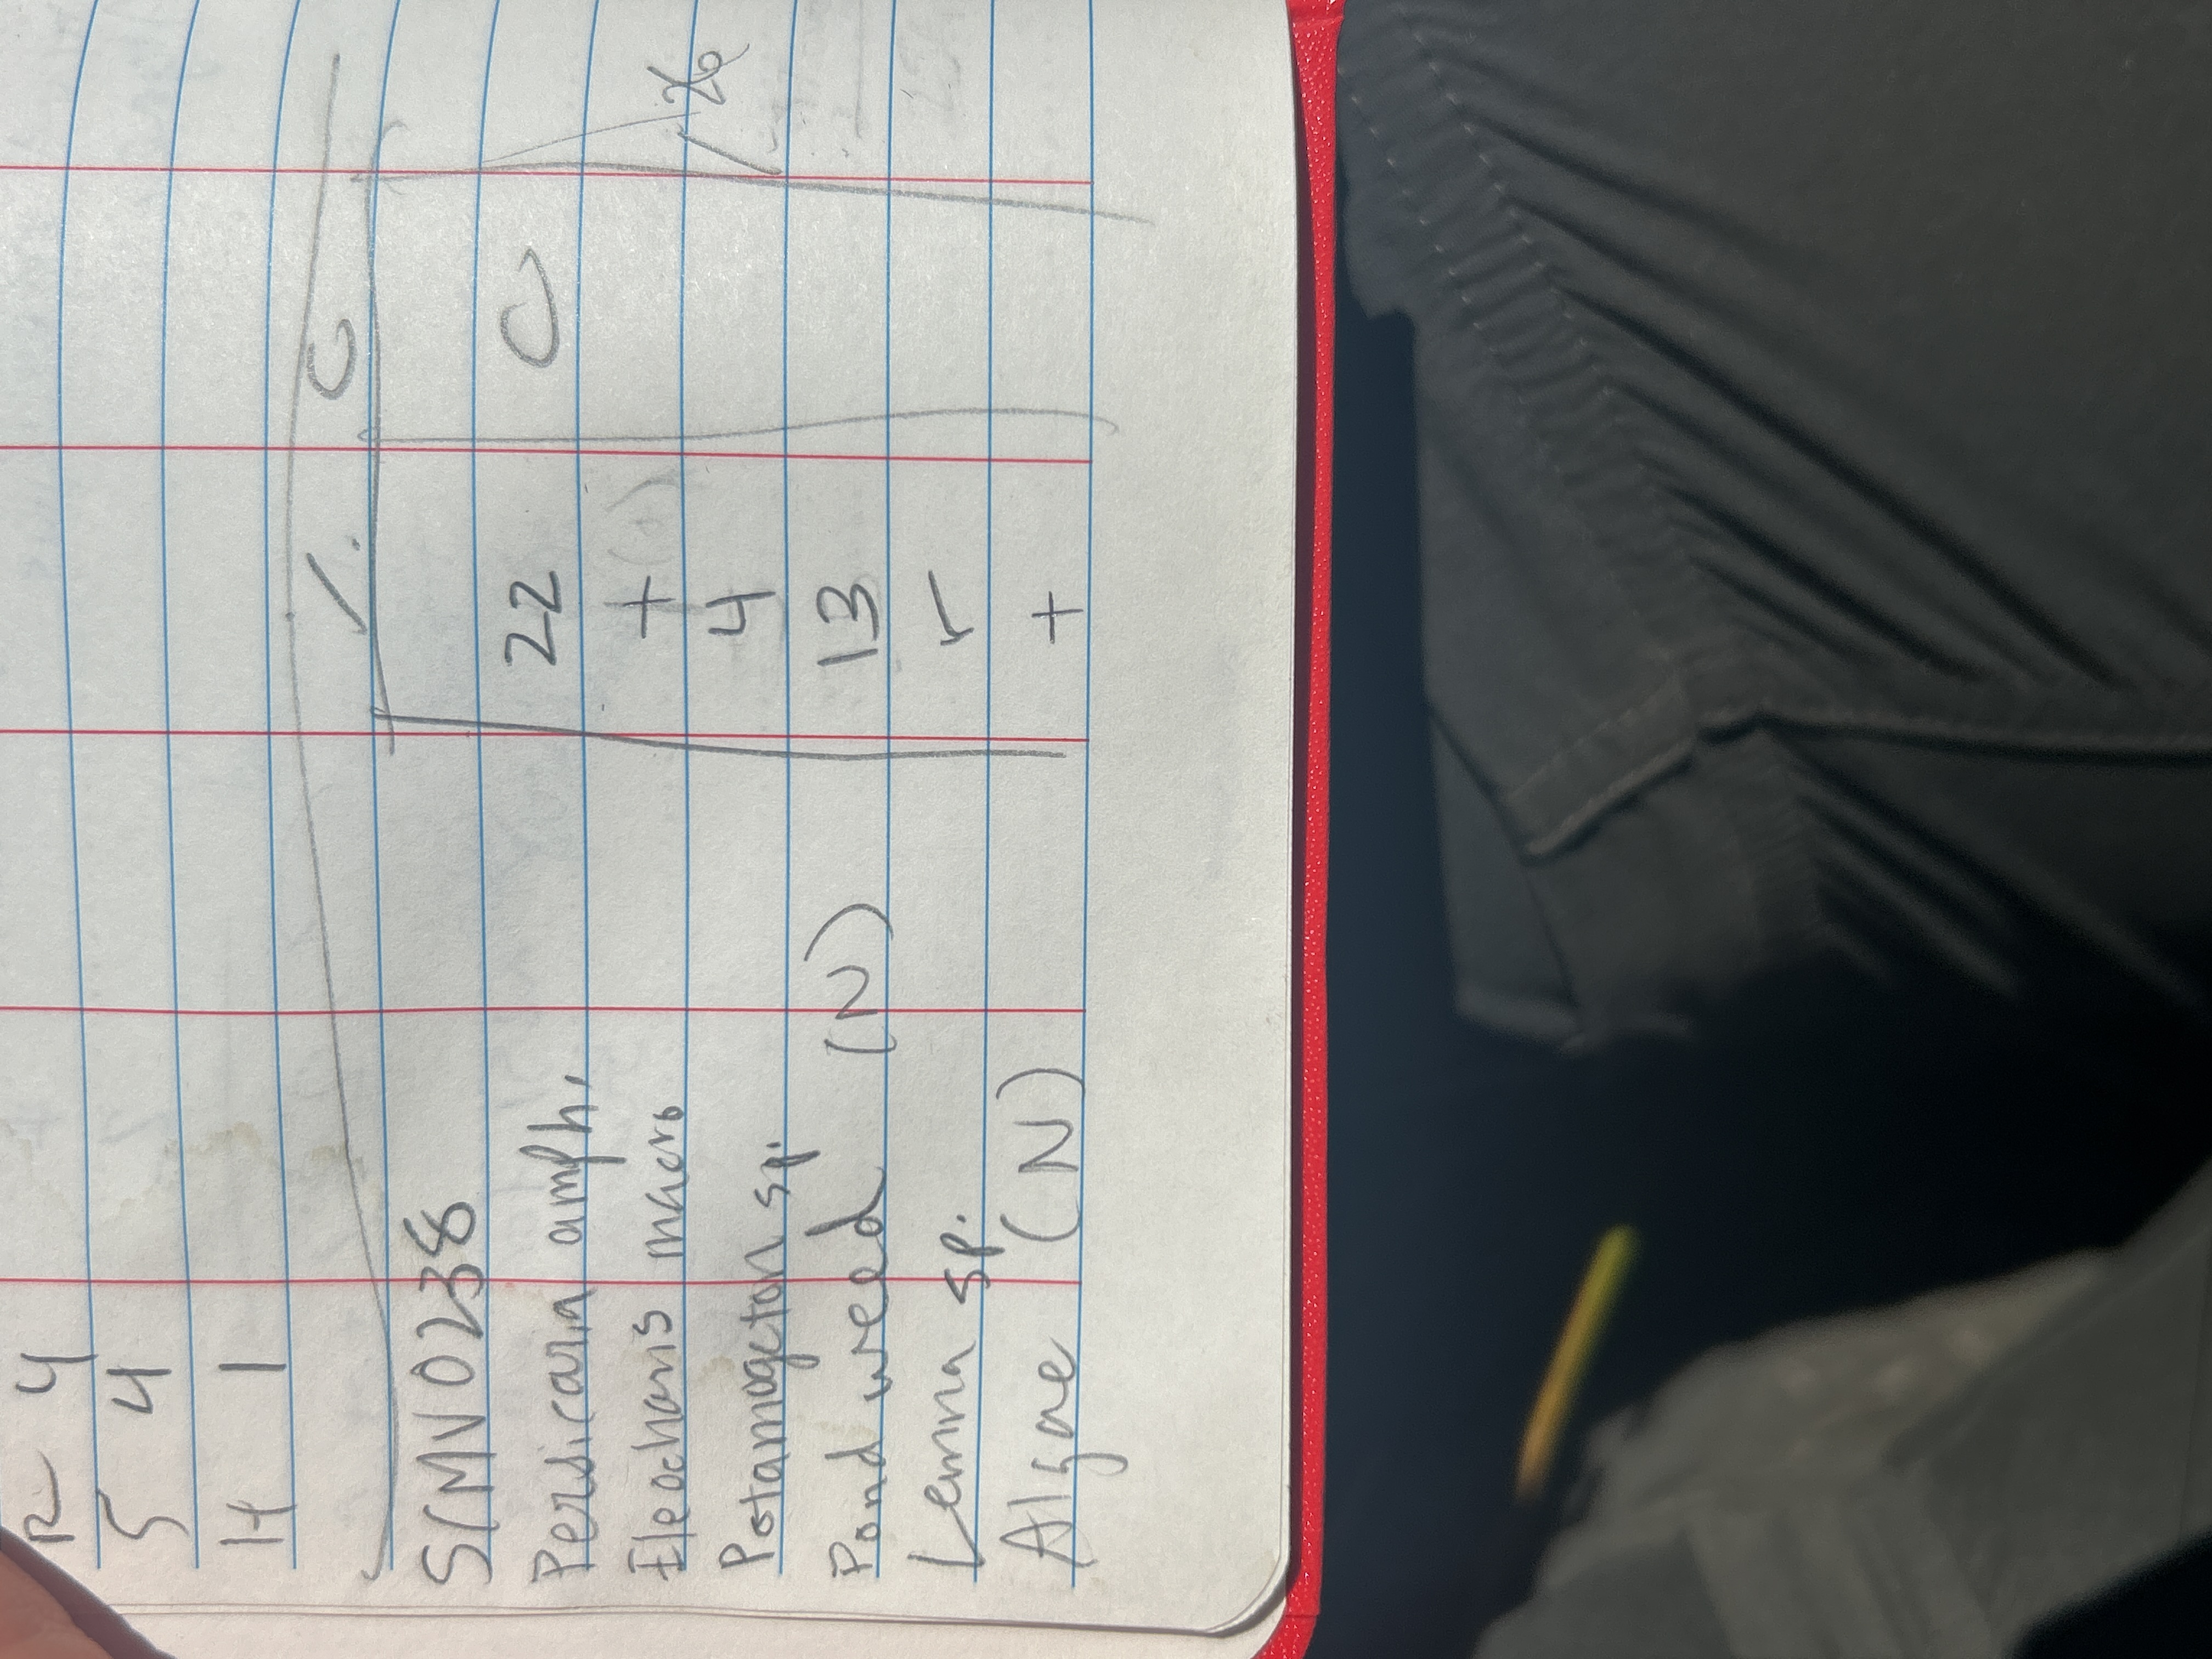 R 4
S 4
H 1
% C
SCMV0238
Persicaria amph. 22 C
Eleocharis macro + (+)
Potamogeton sp. 4
Pond weed (N) 13
Lemna sp. r
Algae (N) +